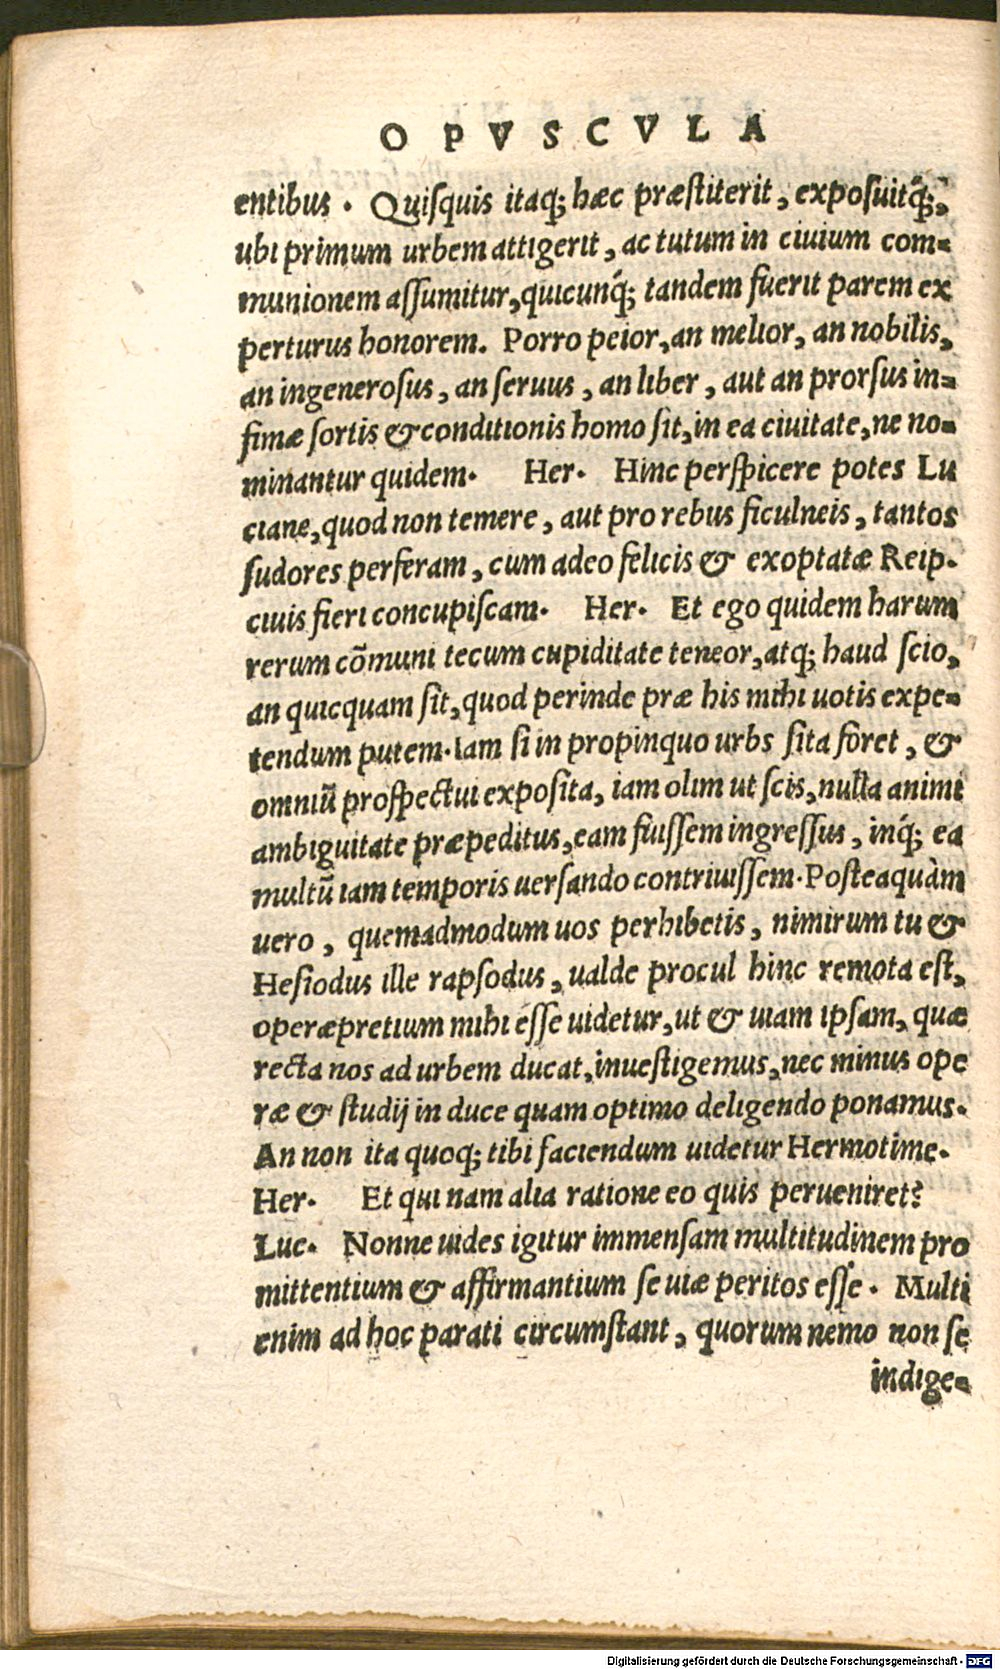 OPVSCVLA
entibus. Quiſquis itaq; hæc præſtiterit, expoſuitq́;,
ubi primum urbem attigerit, ac tutum in ciuium com-
munionem aſſumitur, quicunq́; tandem fuerit parem ex
perturus honorem. Porro peior, an melior, an nobilis,
an ingeneroſus, an ſeruus, an liber, aut an prorſus in-
fimæ ſortis & conditionis homo ſit, in ea ciuitate, ne no-
minantur quidem. Her. Hinc perſpicere potes Lu
ciane, quod non temere, aut pro rebus ficulneis, tantos
ſudores perferam, cum adeo felicis & exoptatæ Reip.
ciuis fieri concupiſcam. Her. Et ego quidem harum
rerum cõmuni tecum cupiditate teneor, atq; haud ſcio,
an quicquam ſit, quod perinde præ his mihi uotis expe-
tendum putem. Iam ſi in propinquo urbs ſita foret, &
omniũ proſpectui expoſita, iam olim ut ſcis, nulla animi
ambiguitate præpeditus, eam fuiſſem ingreſſus, inq́; ea
multũ iam temporis uerſando contriuiſſem. Poſteaquàm
uero, quemadmodum uos perhibetis, nimirum tu &
Heſiodus ille rapſodus, ualde procul hinc remota eſt,
operæpretium mihi eſſe uidetur, ut & uiam ipſam, quæ
recta nos ad urbem ducat, inueſtigemus, nec minus ope
ræ & ſtudij in duce quam optimo deligendo ponamus.
An non ita quoq; tibi faciendum uidetur Hermotime.
Her. Et qui nam alia ratione eo quis perueniret?
Luc. Nonne uides igitur immenſam multitudinem pro
mittentium & affirmantium ſe uiæ peritos eſſe. Multi
enim ad hoc parati circumſtant, quorum nemo non ſe
indige-
Digitalisierung gefördert durch die Deutsche Forschungsgemeinschaft - DFG